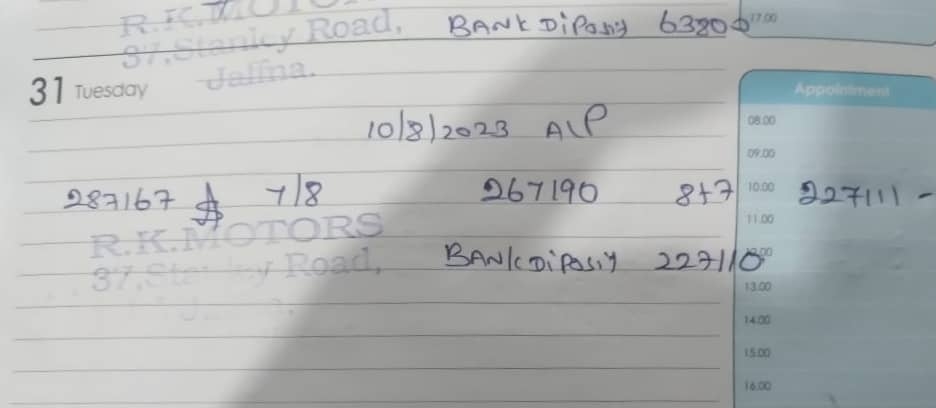 R.K.MOTORS
BANK DiPosiy 63800 17.00
37,Stanley Road,
Jaffna.
31 Tuesday
Appointment
10/8/2023 A\P
08.00
09.00
287167 7/8 267190 8+7 10.00 227111 -
11.00
R.K.MOTORS
BANK DiPosiy 227110
37,Stanley Road,
13.00
14.00
15.00
16.00